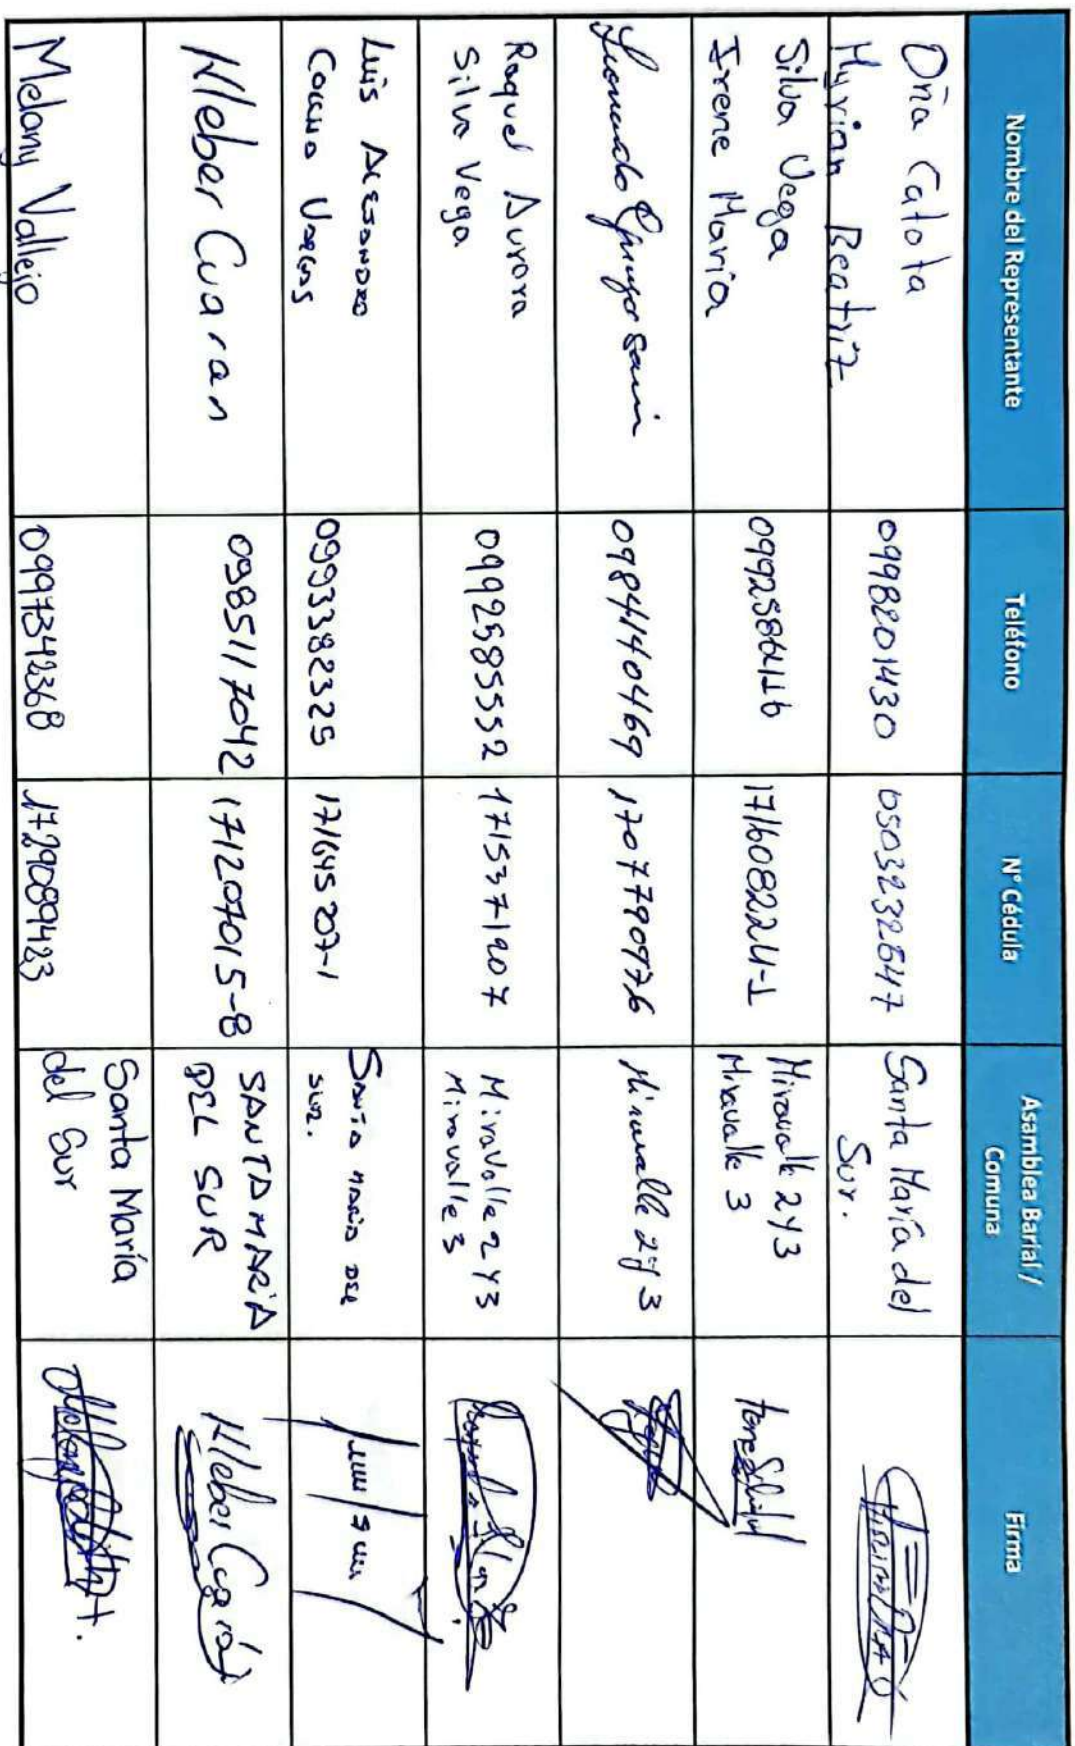 Nombre del Representante
Teléfono
N° Cédula
Asamblea Barial /
Comuna
Firma
Oña Catota
Myrian Beatriz
0998201430
0503232647
Santa María del
Sur.
Silva Vega
Irene María
Miravalle 2y3
Miravalle 3
0984140469
1707790976
Miravalle 2y3
Raquel Aurora
Silva Vega
0992585552
Miravalle 2 y 3
Miravalle 3
Luis
0993382325
171645207-1
Santa Maria del
sur.
Kleber Cuaran
0985117042
171207015-8
SANTA MARIA
DEL SUR
Kleber Cuarán
Melany Vallejo
0997342368
1729089423
Santa María
del Sur